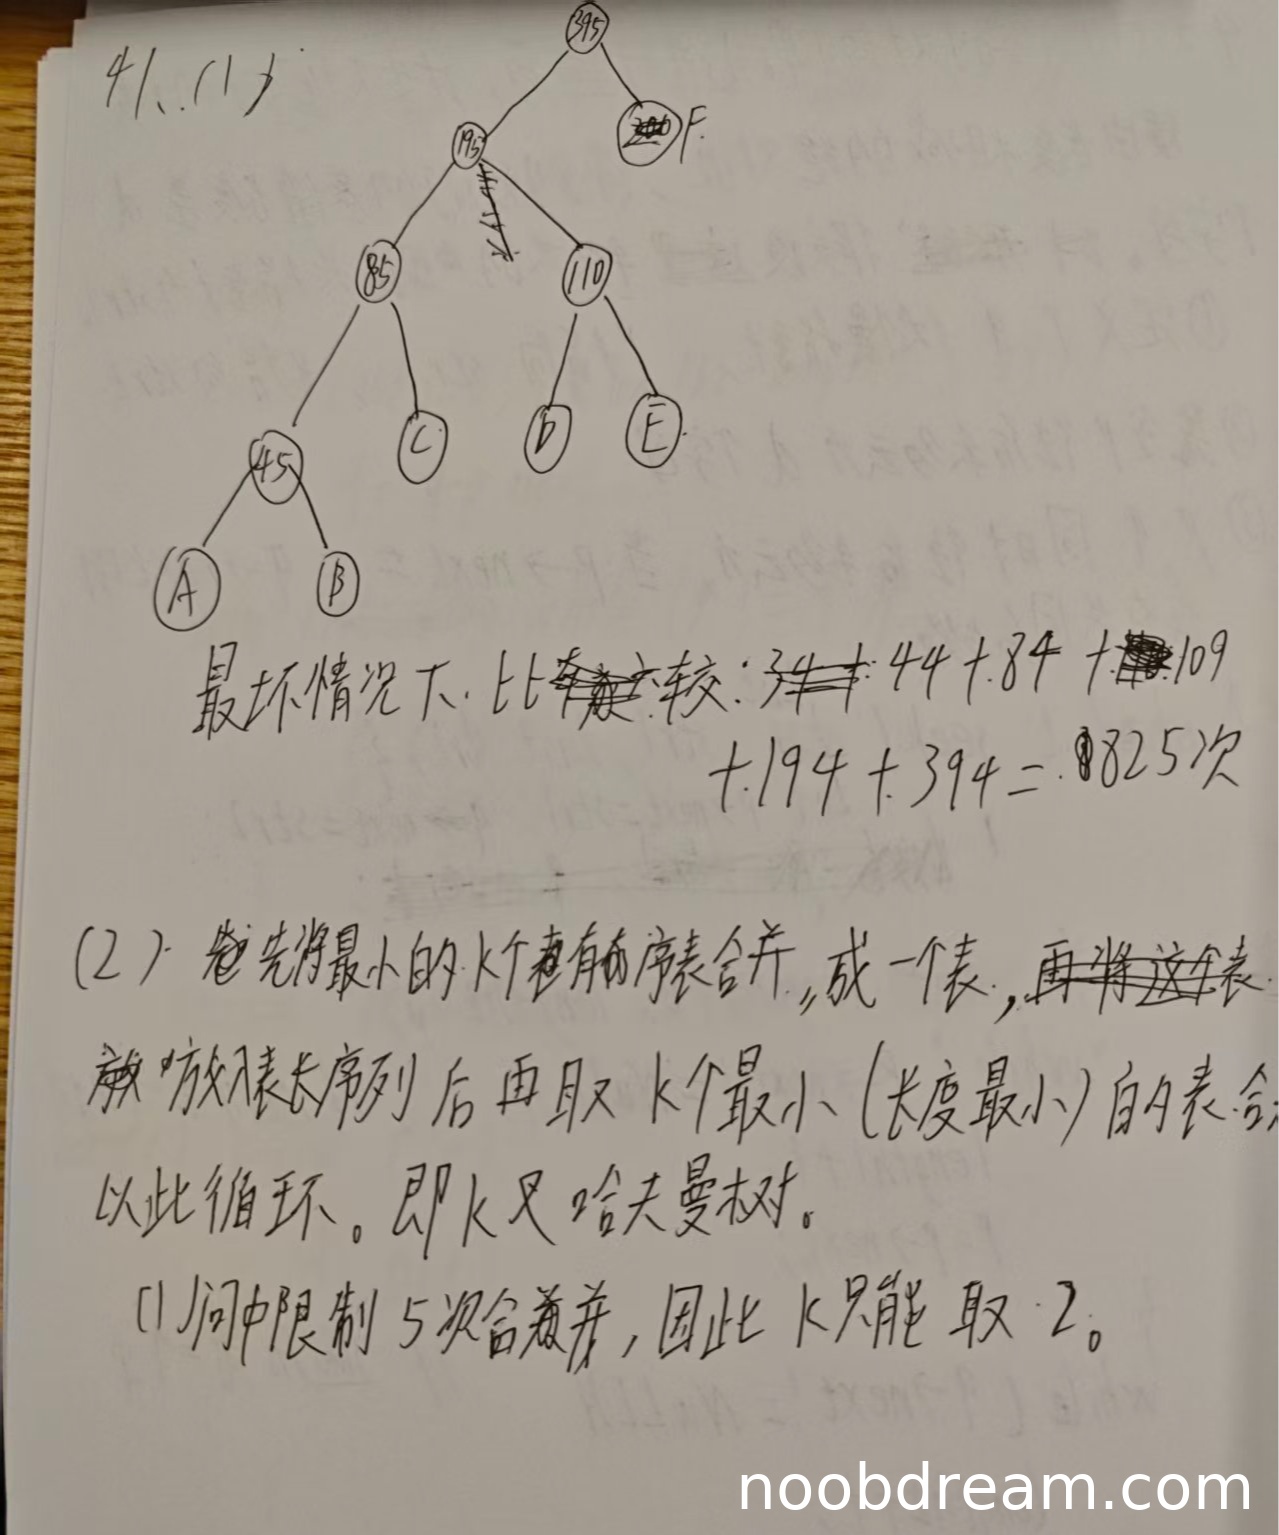 41、(1)
395
195
F
85
110
45
C
D
E
A
B
最坏情况下.比较:44+84+109
+194+394=825次
(2)先将最小的k个有序表合并,成一个表,
放入表长序列后再取k个最小(长度最小)的表合
以此循环。即k叉哈夫曼树。
(1)问中限制5次合并,因此k只能取2。
noobdream.com